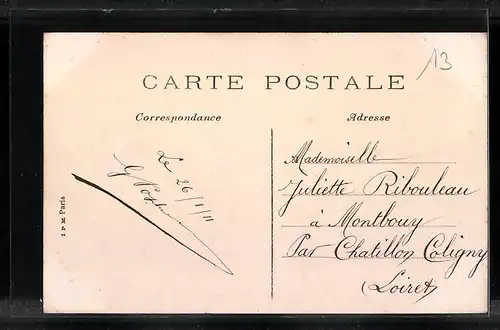 13
CARTE POSTALE
Correspondance
Adresse
Le 26/1/11
Mademoiselle
Juliette Ribouleau
à Montbouy
Par Chatillon Coligny
(Loiret)
I P M Paris